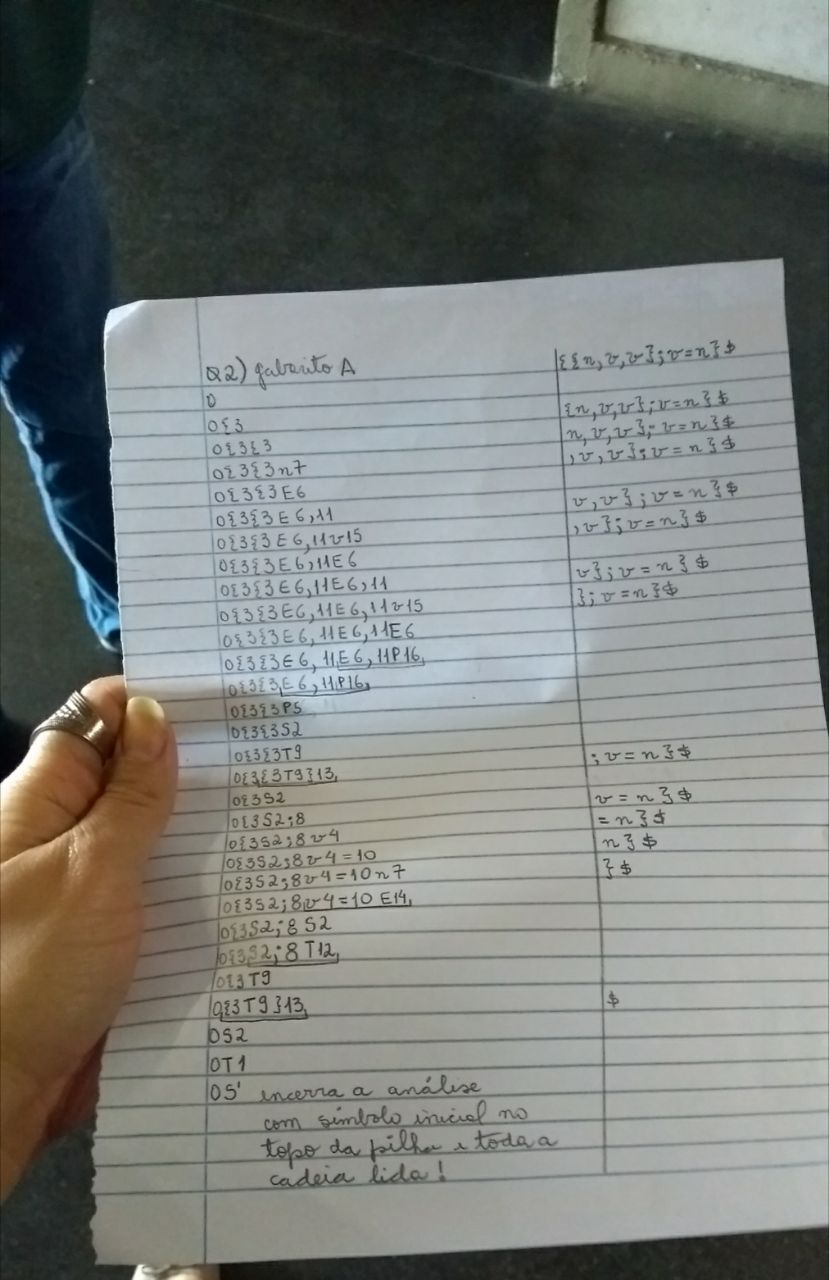 Q2) gabarito A {{n,v,v};v=n}$
0
0{3 {n,v,v};v=n}$
0{3{3 n,v,v};v=n}$
0{3{3n7 ,v,v};v=n}$
0{3{3E6
0{3{3E6,11 v,v};v=n}$
0{3{3E6,11v15 ,v};v=n}$
0{3{3E6,11E6
0{3{3E6,11E6,11 v};v=n}$
0{3{3E6,11E6,11v15 };v=n}$
0{3{3E6,11E6,11E6
0{3{3E6,11E6,11P16
0{3{3E6,11P16
0{3{3P5
0{3{3S2
0{3{3T9
0{3{3T9}13 ;v=n}$
0{3S2
0{3S2;8 v=n}$
0{3S2;8v4 =n}$
0{3S2;8v4=10 n}$
0{3S2;8v4=10n7 }$
0{3S2;8v4=10E14
0{3S2;8S2
0{3S2;8T12
0{3T9
0{3T9}13 $
0S2
0T1
0S' encerra a análise
com símbolo inicial no
topo da pilha e toda a
cadeia lida!